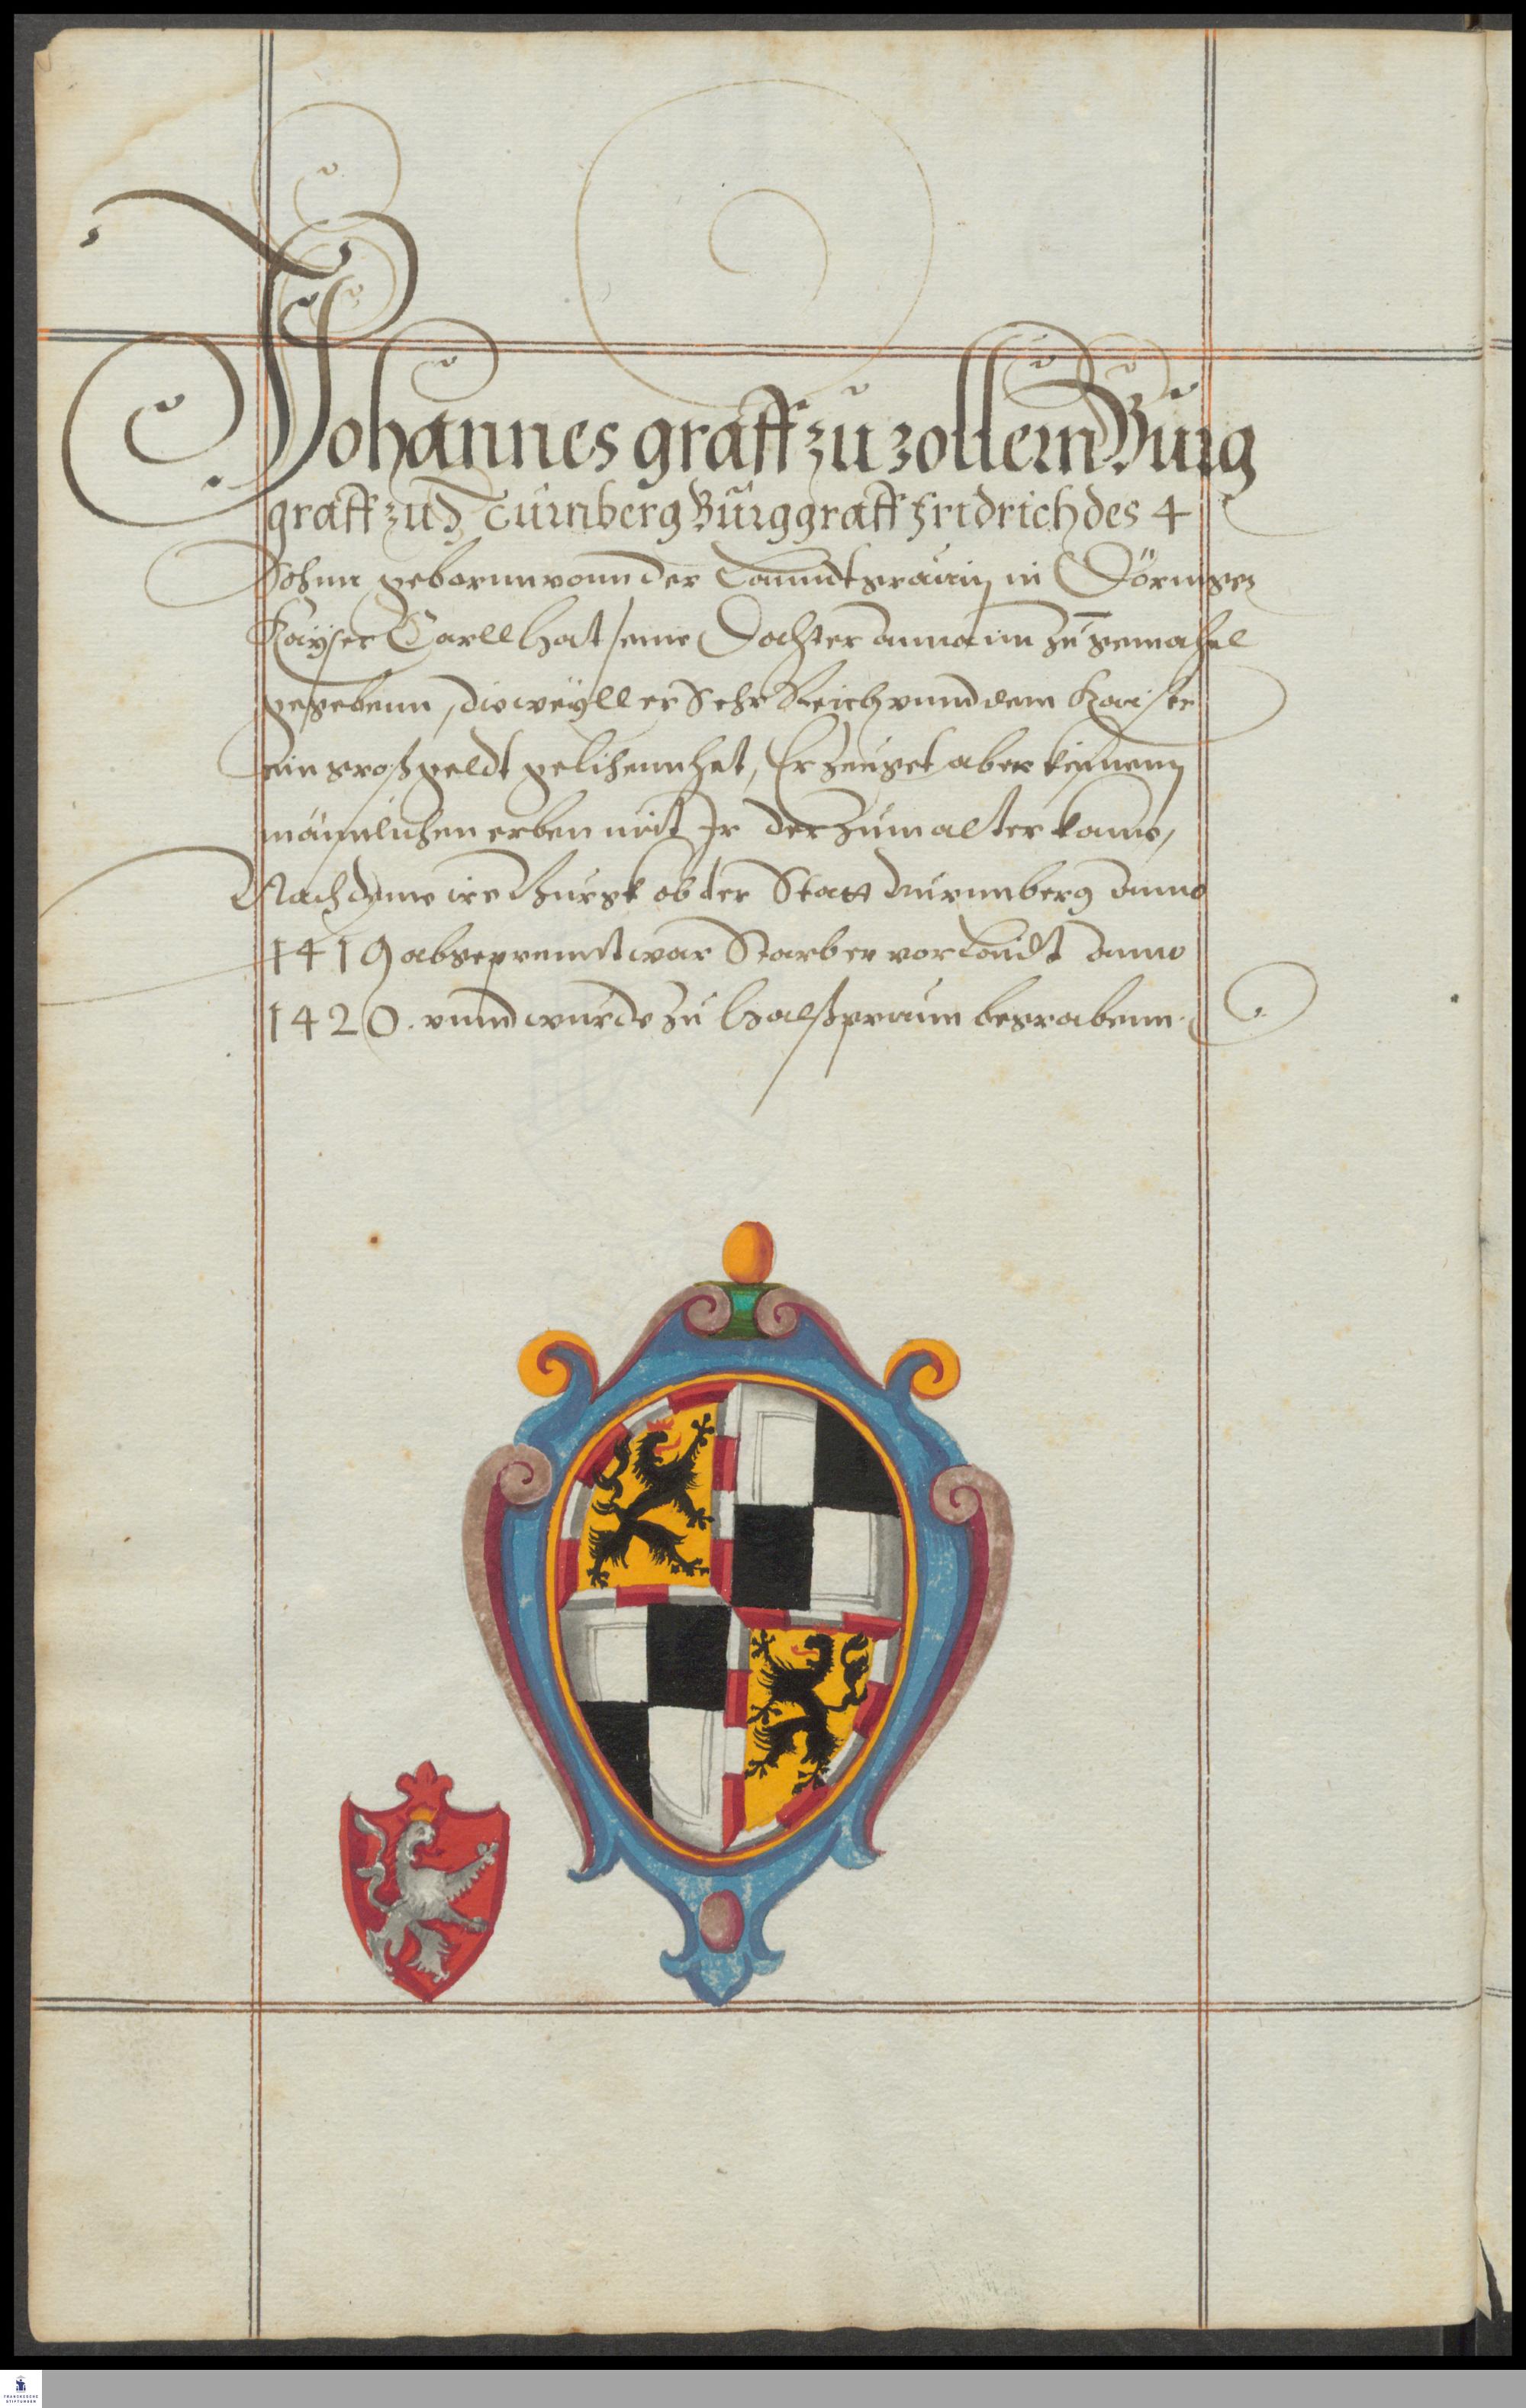 Johannes graff zu zollern Burg
graff zu Nürnberg Burggraff Fridrich des 4
Sohnn gebornn vonn der Lanndtgrävin in Döringen
Kayser Carll hat seine Dochter anna im zu gemahel
gegebenn, dieweyll er Sehr Reich unnd dem Kaiser
ein groß geldt gelihenn hat, Er zeuget aber keinenn
mänlichen erben mit Ir der zum alter kame,
Nach deme ire Burgk ob der Statt Nurmberg anno
1419 abgeprennt war Starb er vor Laidt anno
1420. unnd wurde zu Halßpraun begrabenn.